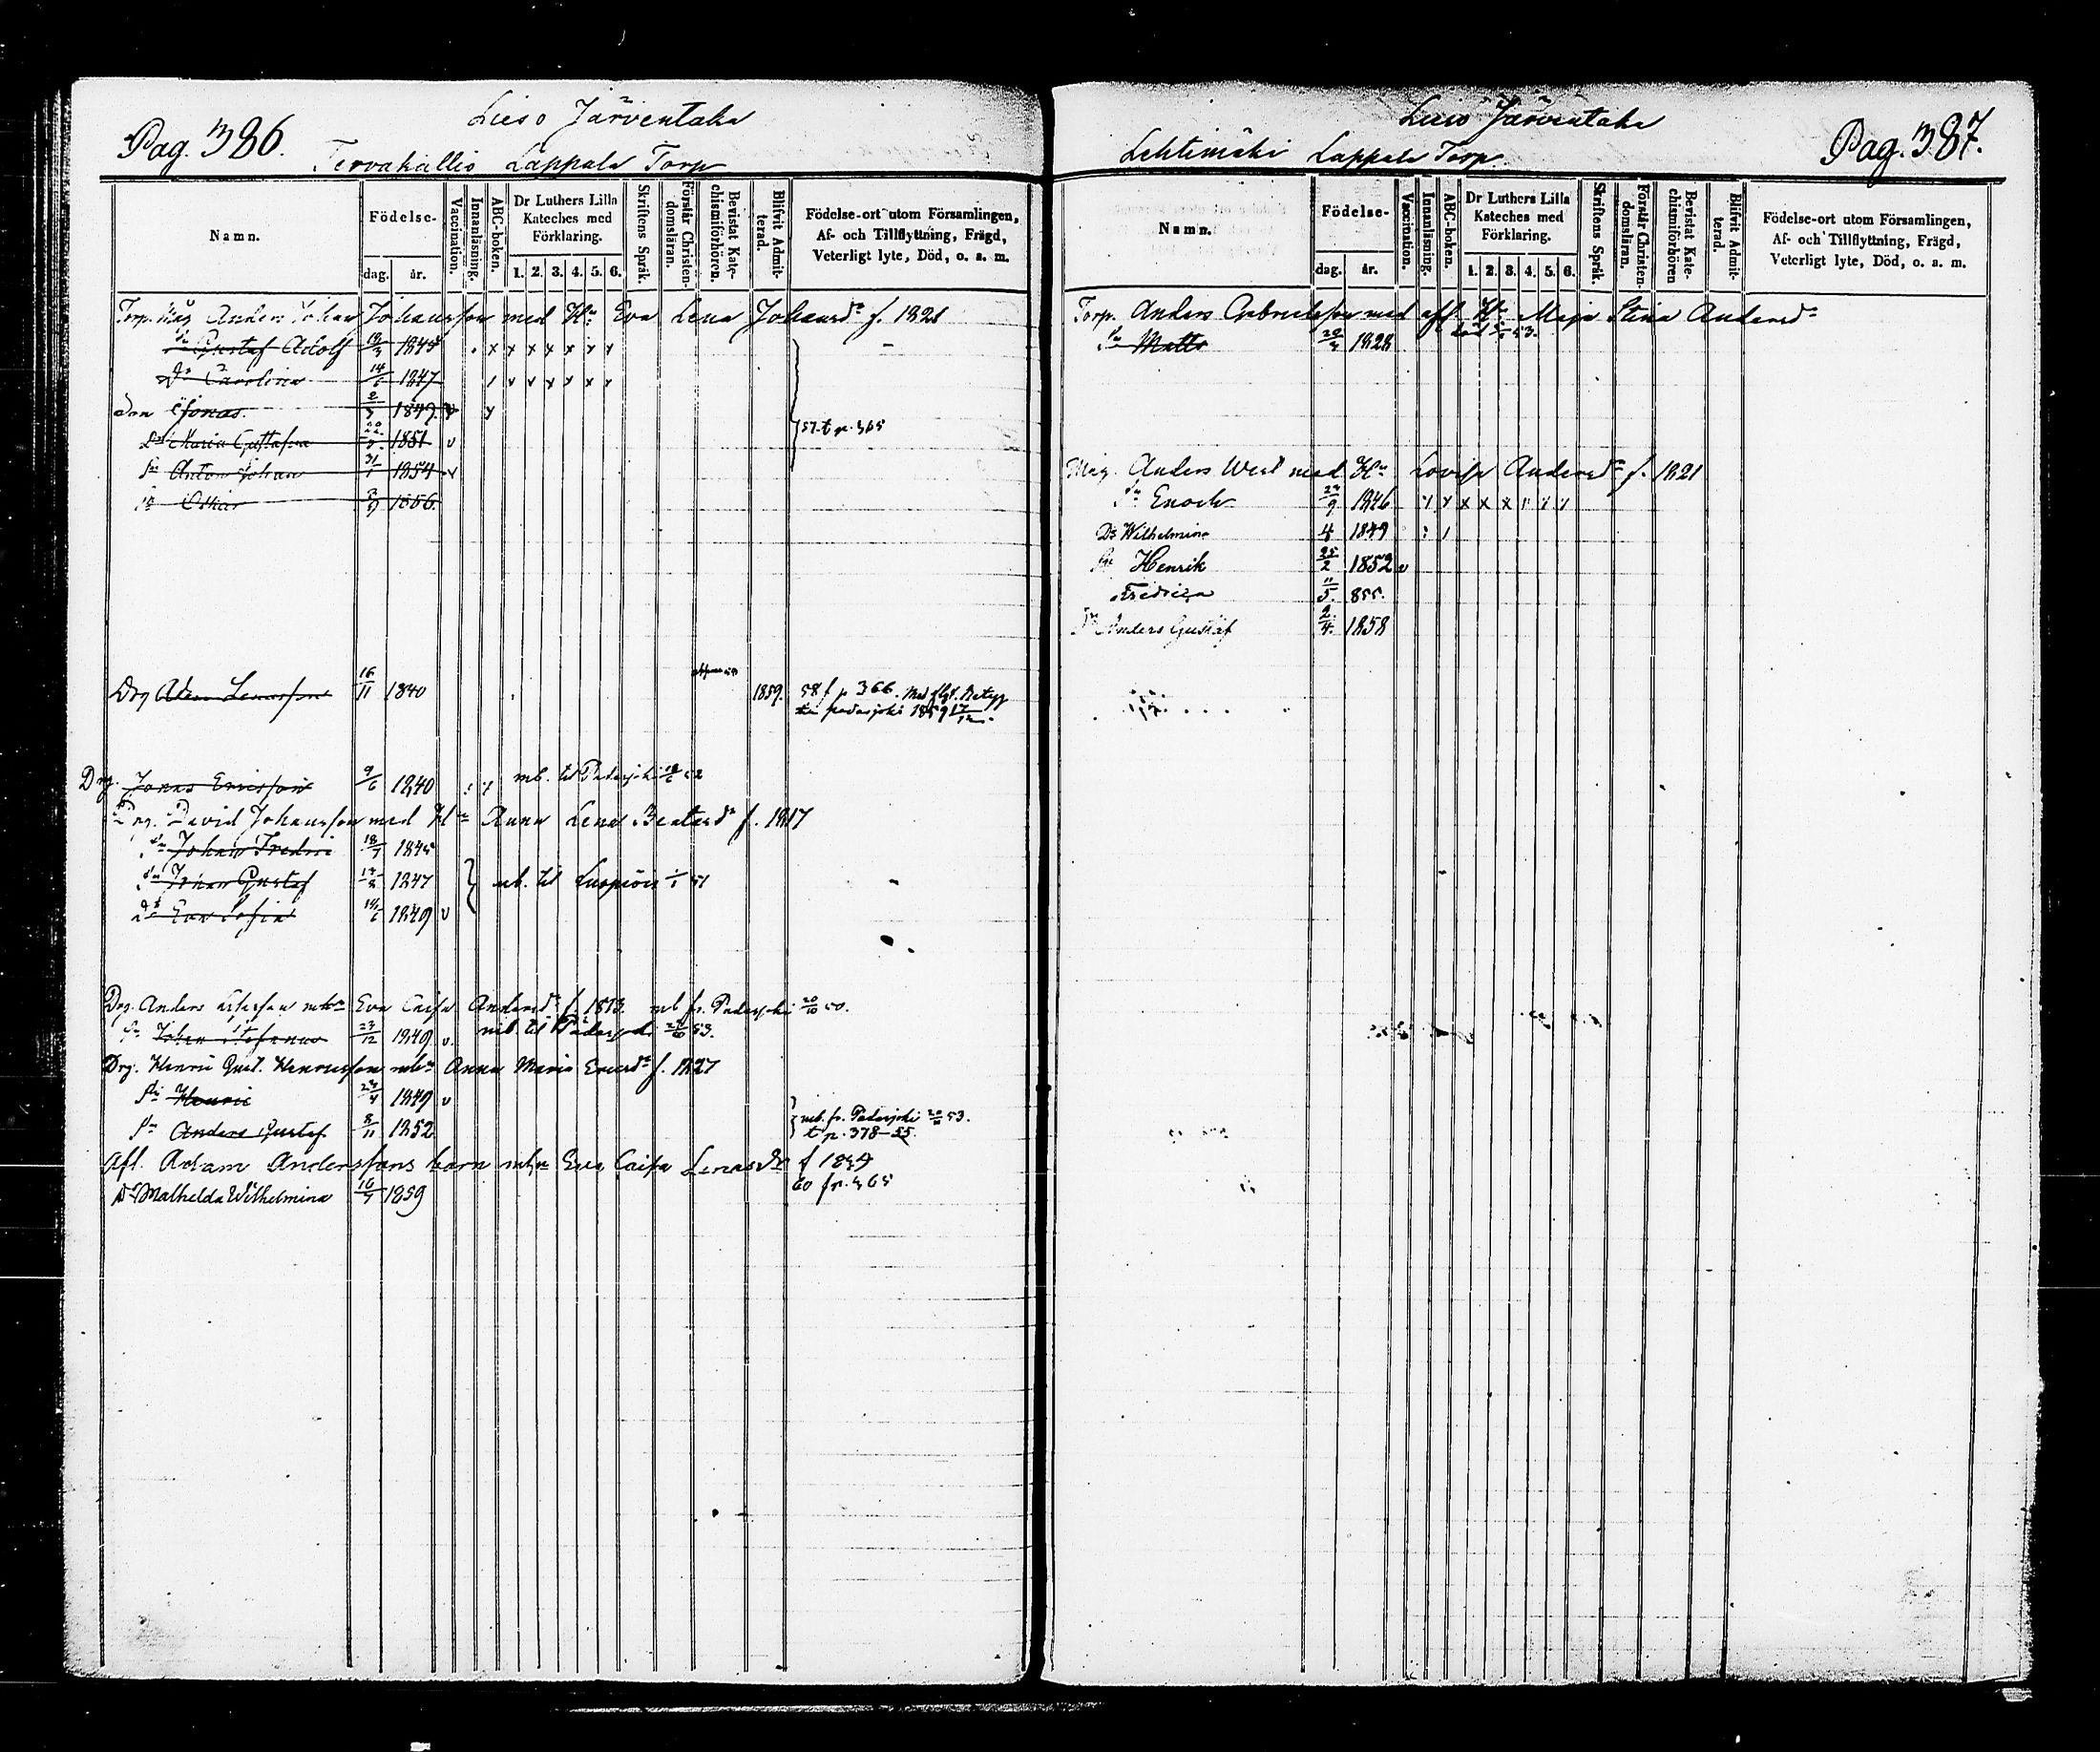 Pag. 386.
Lieso Järventaka
Tervakallio Lappala Torp
Namn.
Födelse-
dag.
år.
Vaccination.
Innanläsning.
ABC-boken.
Dr Luthers Lilla
Kateches med
Förklaring.
1. 2. 3. 4. 5. 6.
Skriftens Språk.
Förstår Christen-
domsläran.
Bevistat Kate-
chismiförhören.
Blifvit Admit-
terad.
Födelse-ort utom Församlingen,
Af- och Tillflyttning, Frägd,
Veterligt lyte, Död, o. a. m.
Torp. Måg Anders Johan Johansson med Hu Eva Lena Johansdr f. 1821
Sn Gustaf Adolf 1845
Dr Carolina 14/6 1847
Son Jonas 1849
Dr Maria Gustafva 1851 v
57 t p. 365
Sn Anton Johan 31/1 1854
Sn Oskar 1856
Drg 16/11 1840 1859. 58 f p 366. Med flyt. Betyg
till padasjoki 1859 17/12
Drg. Jonas Ericsson 9/6 1840 mb. til Padasjoki
Drg. David Johansson med Hu Anna Lena Beatasdr f. 1817
Sn Johan Fredric 18/7 1845
Sn Johan Gustaf 1847 mb. til Luopiois 51
Dr Eva Sofia 1849 v
Drg. Anders mhu Eva Caisa Andersdr f. 1813. mb fr. Padasjoki 20/10 50.
Sn Johan Stefanus 23/12 1849 v. mb til Padasjoki 53.
Drg. Henric Gust. Henricsson mhu Anna Maria Ericsdr f. 1827
Sn Henric 1849 v
Sn Anders Gustaf 8/11 1852
mb. fr. Padasjoki 53.
t p. 378-55.
Afl. Adam Anderssons barn mhu Eva Caisa
60 f p. 365
Dr Mathelda Wilhelmina 1859
Lieso Järventaka
Lehtimäki Lappala Torp.
Pag. 387.
Namn.
Födelse-
dag.
år.
Vaccination.
Innanläsning.
ABC-boken.
Dr Luthers Lilla
Kateches med
Förklaring.
1. 2. 3. 4. 5. 6.
Skriftens Språk.
Förstår Christen-
domsläran.
Bevistat Kate-
chismiförhören
Blifvit Admit-
terad.
Födelse-ort utom Församlingen,
Af- och Tillflyttning, Frägd,
Veterligt lyte, Död, o. a. m.
Torp. Anders Gabrielsson med afl. Hu Maja Stina Andersdr
Sn Matts 1828
Måg. Anders West med Hu Lovisa Andersdr f. 1821
Sn Enoch 1846
Dr Wilhelmina 1849
Sn Henrik 25/2 1852 v
Fredrica 11/5 855.
Sn Anders Gustaf 2/4 1858